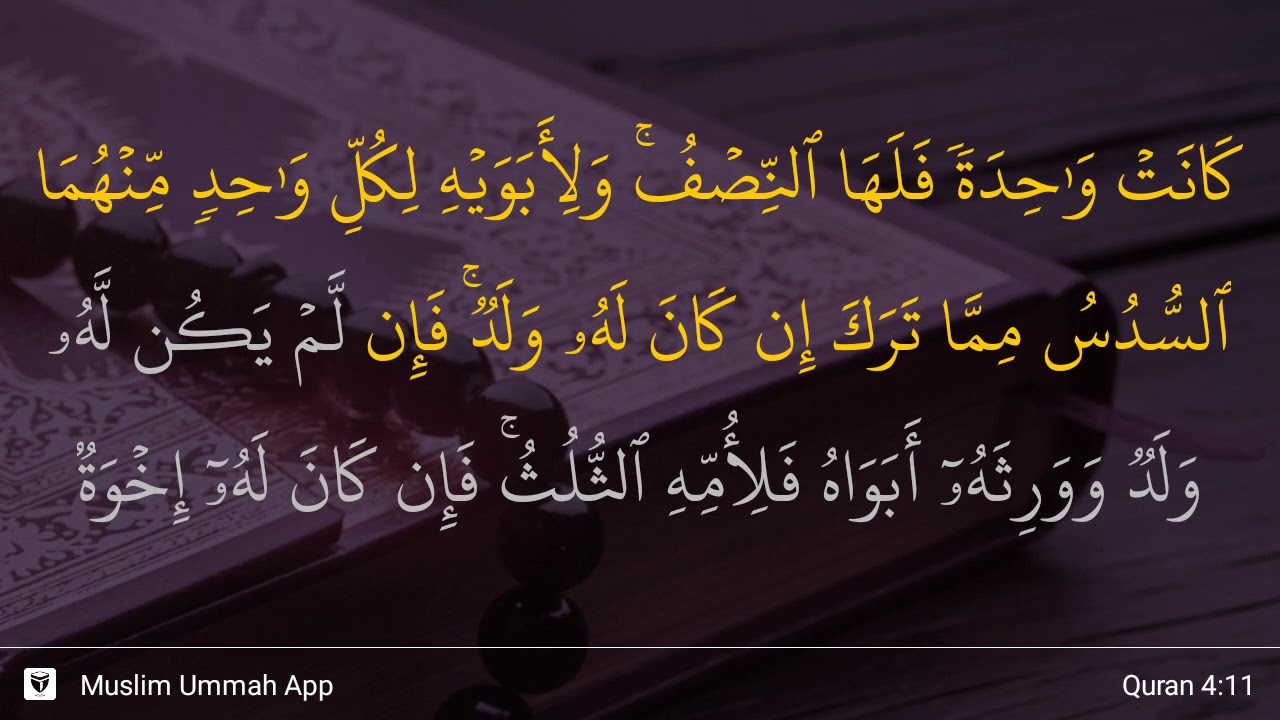 كَانَتْ وَٰحِدَةً فَلَهَا ٱلنِّصْفُ ۚ وَلِأَبَوَيْهِ لِكُلِّ وَٰحِدٍ مِّنْهُمَا
ٱلسُّدُسُ مِمَّا تَرَكَ إِن كَانَ لَهُۥ وَلَدٌ ۚ فَإِن لَّمْ يَكُن لَّهُۥ
وَلَدٌ وَوَرِثَهُۥٓ أَبَوَاهُ فَلِأُمِّهِ ٱلثُّلُثُ ۚ فَإِن كَانَ لَهُۥٓ إِخْوَةٌ
Muslim Ummah App
Quran 4:11